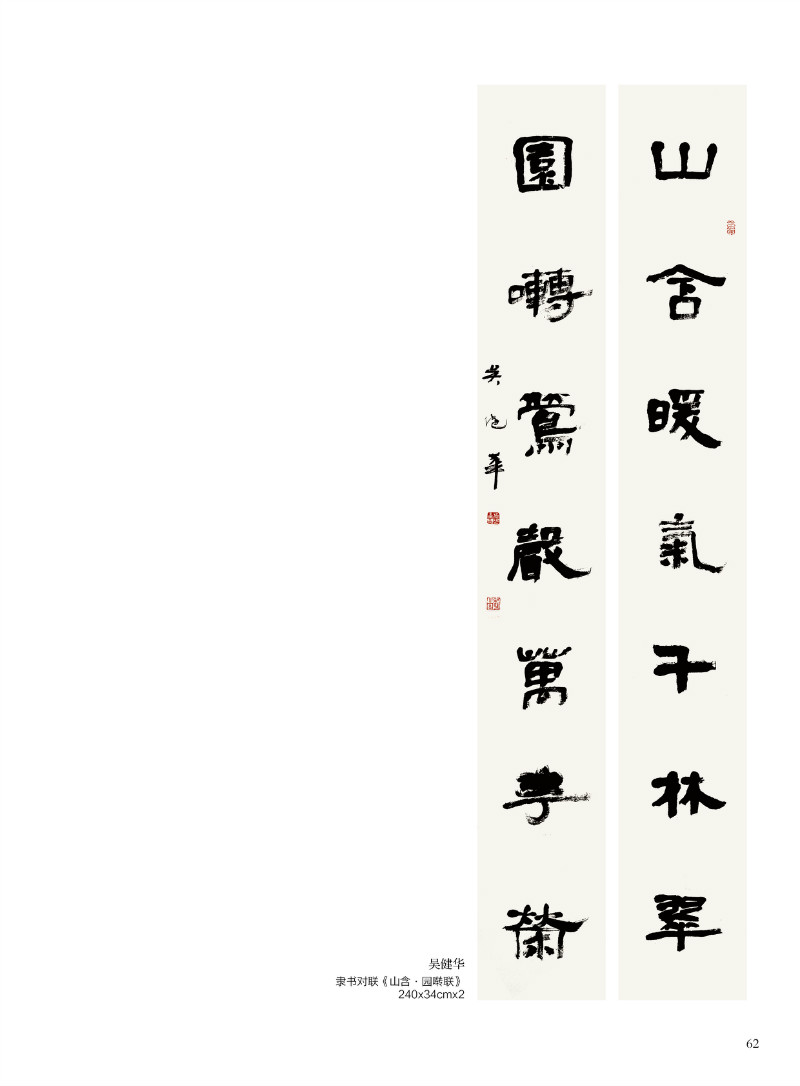 山含暖氣千林翠
園囀鶯聲萬榮
吴健华
吴健华
隶书对联《山含·园啭联》
240x34cmx2
62